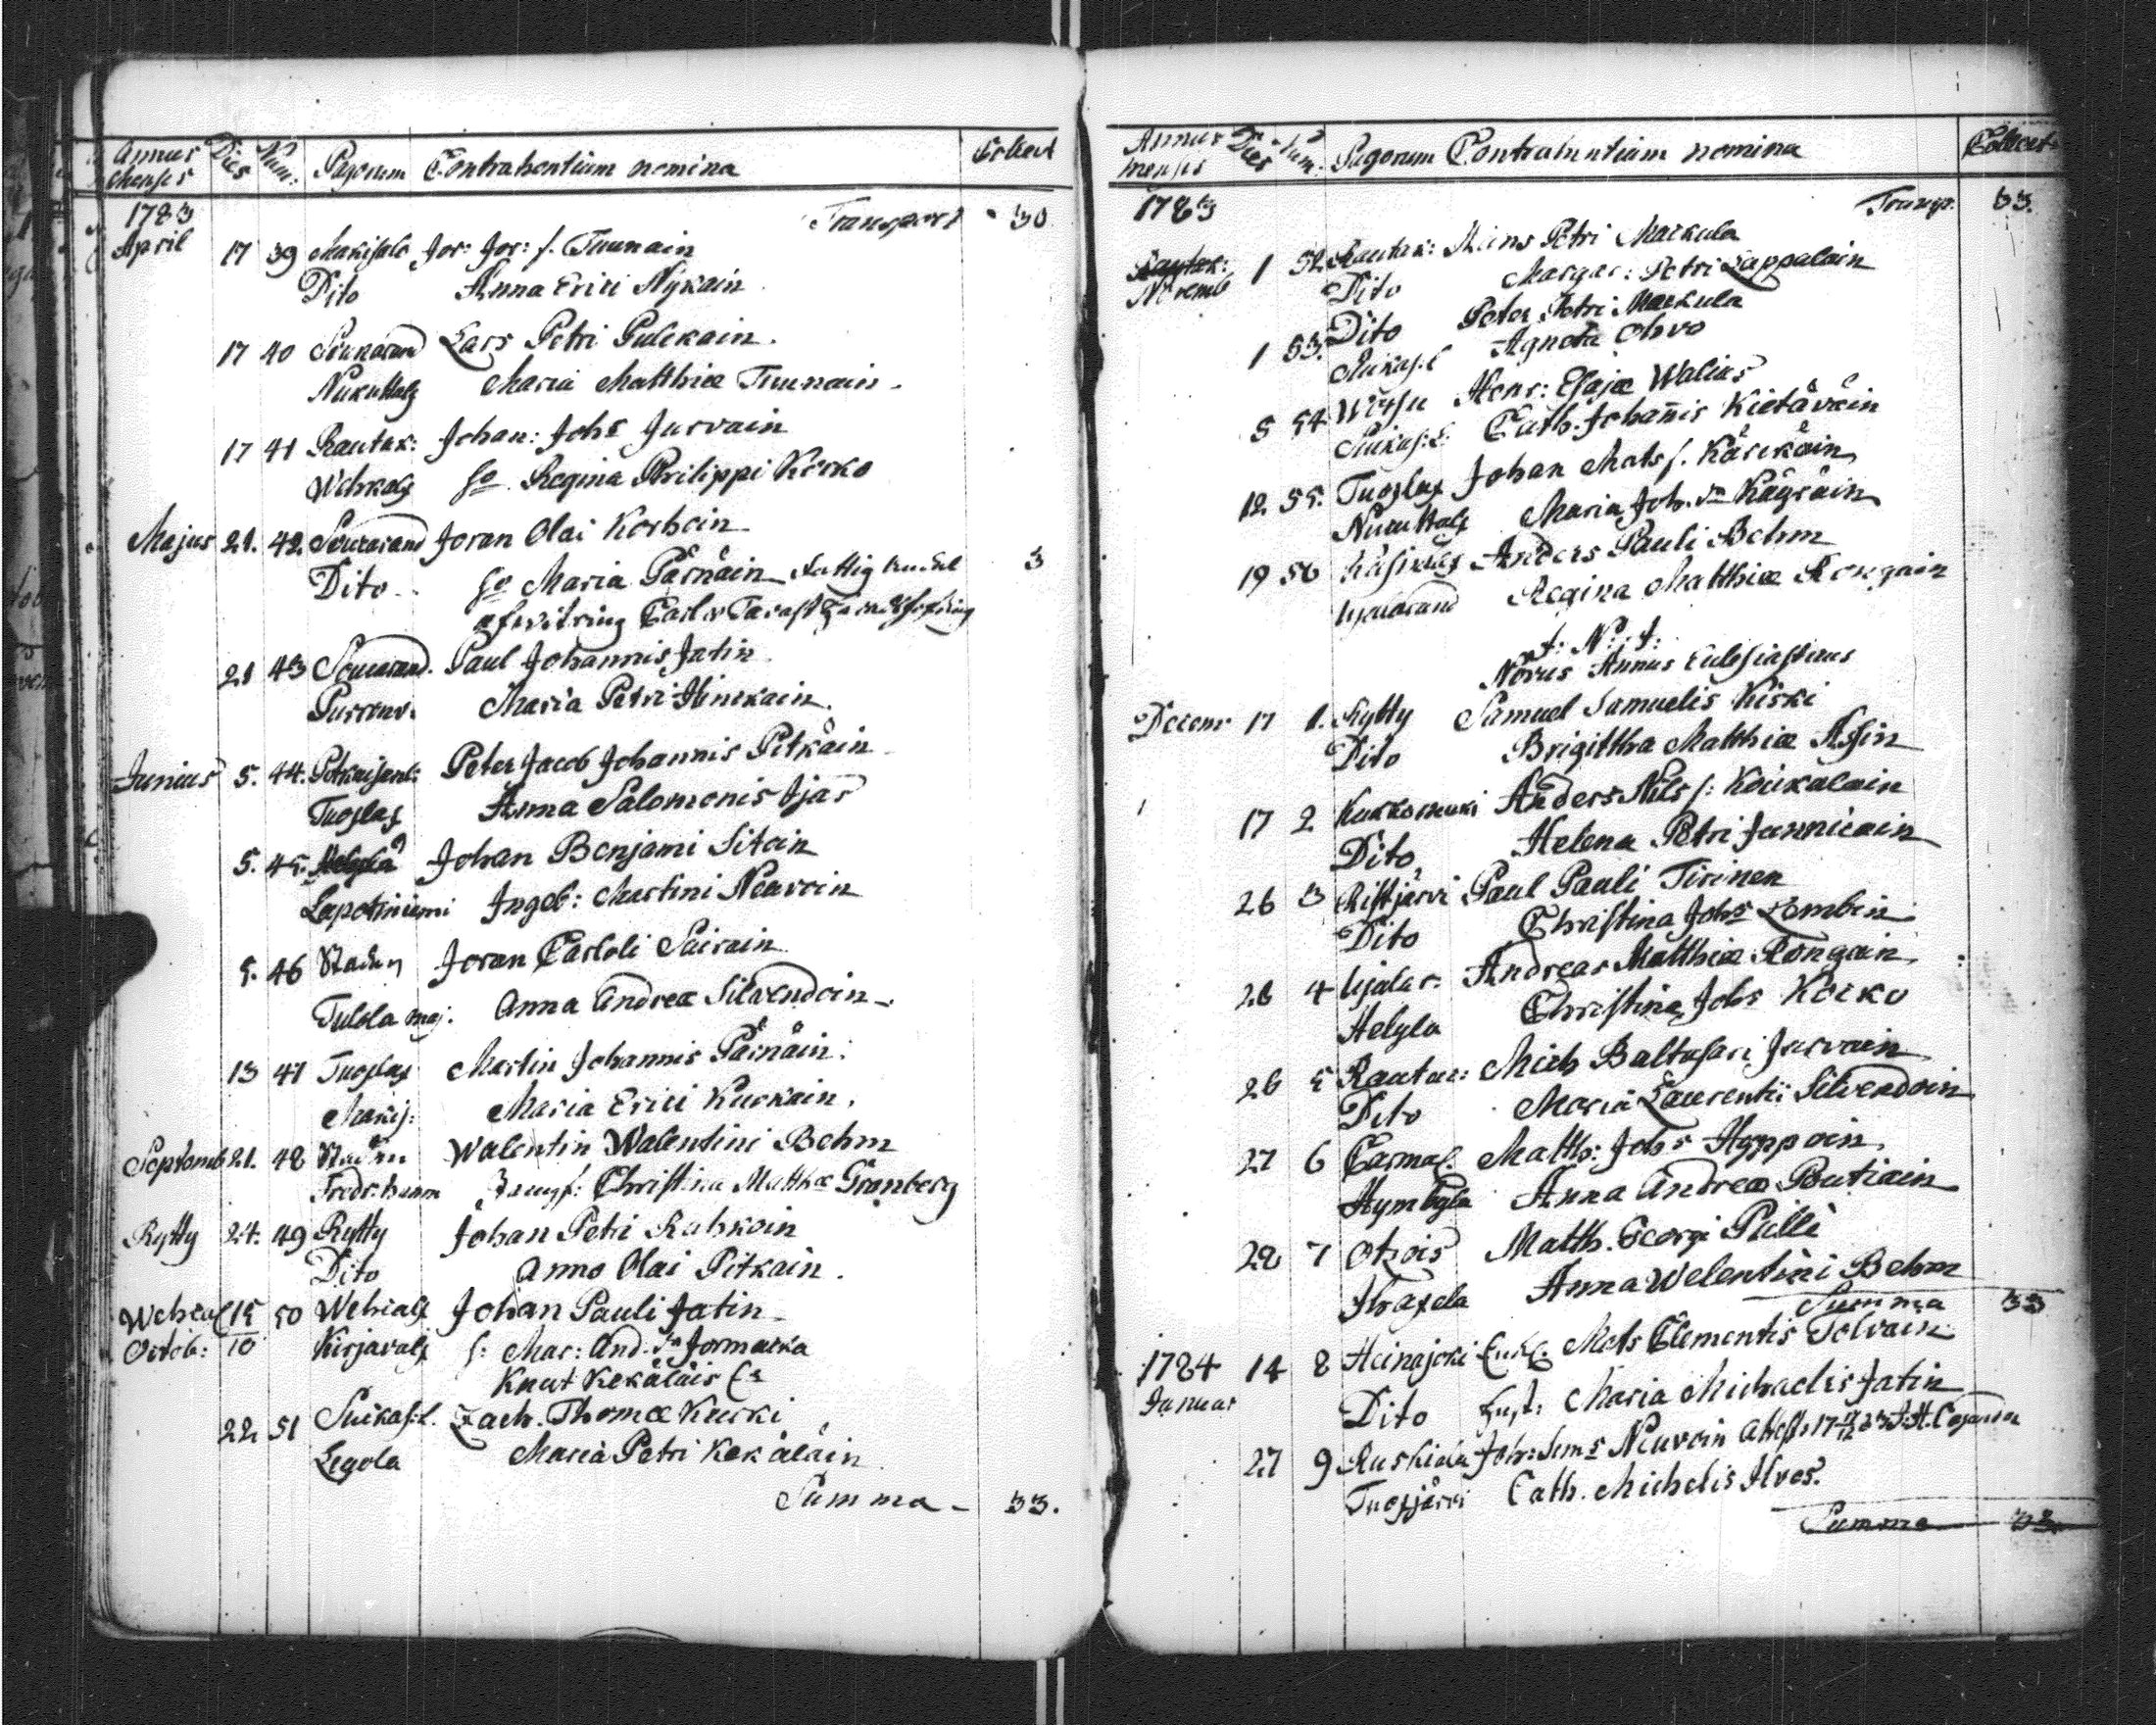 Annus Menses Dies Num: Pagorum Contrahentium nomina Collect
1783 Transport 30
April 17 39 Makisalo Jör: Jör: s. Tuunain
Dito Anna Erici Nykäin
17 40 Sourarand Lars Petri Pulckain.
Nukuttalx Maria Matthiæ Tuunain
17 41 Rautak: Johan: Johs Jurvain
Wehkalx Regina Philippi Kärko
Majus 21. 42. Sourarand Jöran Olai Korhoin 3
Dito Maria Pärnäin
21 43 Sourarand. Paul Johannis Jatin
Maria Petri Hinckain.
Junius 5. 44. Peter Jacob Johannis Pitkäin
Tuoslax Anna Salomonis Ijäs
5. 45. Helylä Johan Benjami Sitoin
Lapotiniemi Ingeb: Martini Neuvoin
5. 46 Staden Jöran Carloli Sairain
Tulola maj. Anna Andreæ Silvendoin
13 47 Tuoslax Martin Johannis Pärnäin
Makis: Maria Erici Kurkain.
Septemb 21. 48 Staden Walentin Walentini Behm
Fredr:hamn Jungf: Christina Matthæ Grönberg
Rytty 24. 49 Rytty Johan Petri Rahkoin
Dito Anna Olai Pitkäin.
15 50 Wehialx Johan Pauli Jatin
Octob: 10 Kirjavalx Mar: And. Jormacka
Knut Kekäläis
22 51 Suikas:l. Zach. Thomæ Kurki
Legola Maria Petri Kekäläin
Summa - 33.
Annus menses Dies Num: Pagorum Contrahentium nomina Collect
1783 Transp. 33.
Rautak: 1 52 Rautak: Måns Petri Markula
Novemb Dito Margar: Petri Lappalain
1 53. Dito Peter Petri Markula
Suikas:l Agneta Ohvo
5 54 Henr: Esajæ Walias
Suikas:l: Cath. Johannis Kietäväin
12 55. Tuoslax Johan Mats s. Kärckäin
Nukuttalx Maria Joh. Käyräin
19 56 Anders Pauli Behm
Ujälarand Regina Matthiæ Rongain
J: N: J:
Novus Annus Eclesiasticus
Decem 17 1. Rytty Samuel Samuelis Kiski
Dito Brigittha Matthiæ Assin
17 2 Kuokkomäki Anders Nils s: Koukalain
Dito Helena Petri Jannicain
26 3 Ristjärvi Paul Pauli Tirinen
Dito Christina Johs Lembin
26 4 Ujalar: Andreas Matthiæ Rongain.
Helyla Christina Johs Kärko
26 5 Rautak: Mich Baltasari Jurvain
Dito Maria Laurentii Silvendoin
27 6 Carmal. Matth: Johs Hyppöin
Hymbyla Anna Andreæ Poutiain
28 7 Otsois Matth. Georgi Pälli
Ihaxela Anna Welentini Behm
Summa 33
1784 14 8 Heinajoki Mats Clementis Tolvain
Januar Dito Maria Michaelis Jatin
27 9 Ruskiala Joh: Sims Neuvoin
Tuoxjärvi Cath. Michelis Ilves.
Summa 33